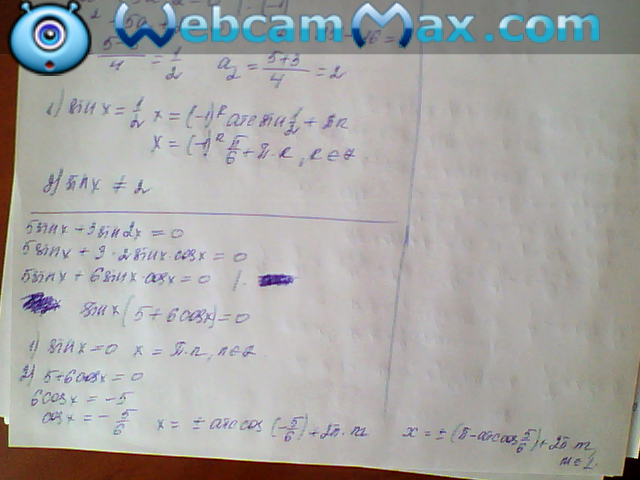 WebcamMax.com
= 1/2 a₂ = (5+3)/4 = 2
1) sin x = 1/2 x = (-1)ᵏ arcsin 1/2 + πn
x = (-1)ⁿ π/6 + π·n, n ∈ z
2) sin x ≠ 2
5sinx + 3sin2x = 0
5sinx + 3·2sinx·cosx = 0
5sinx + 6sinx·cosx = 0 | :
sinx(5+6cosx) = 0
1) sinx = 0 x = π·n, n∈z
2) 5+6cosx = 0
6cosx = -5
cosx = -5/6 x = ± arccos(-5/6) + 2π·m x = ±(π-arccos 5/6) + 2π m,
m∈z